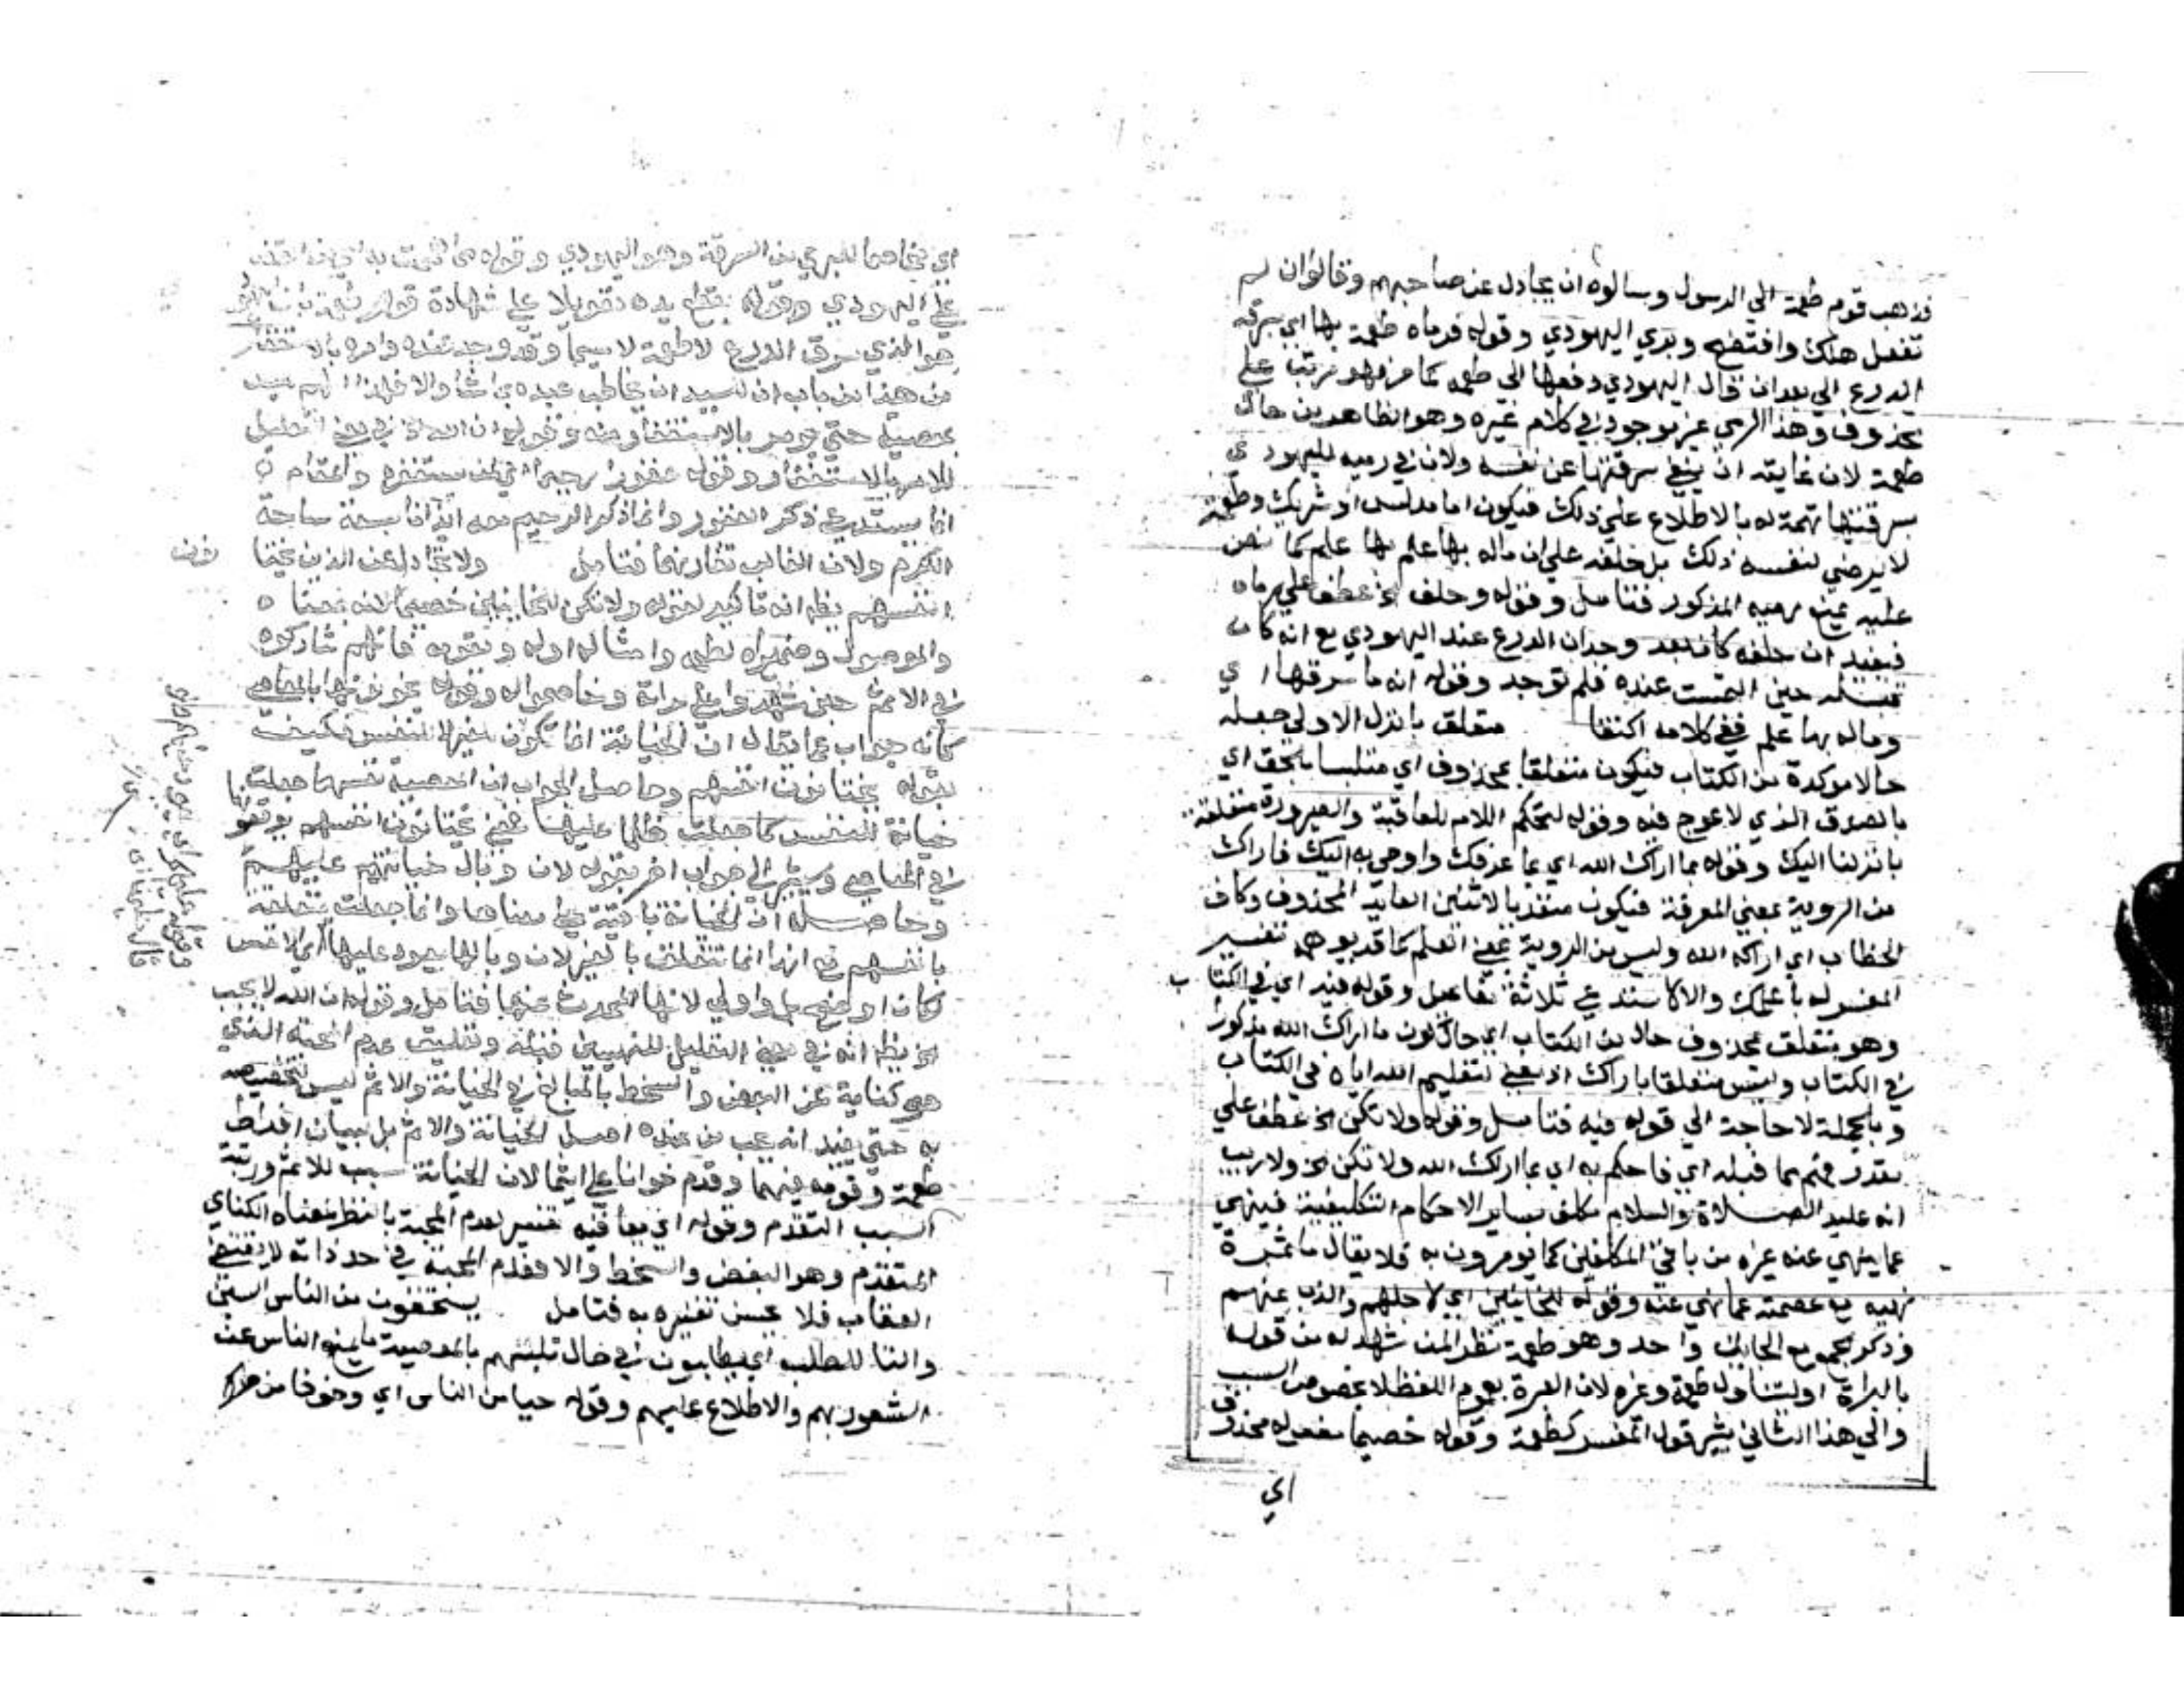 فذهب قوم طعمة الي الرسول وسالوه ان يجادل عن صاحبهم وقالوا ان لم
تفعل هلك وافتضح وبري اليهودي وقوله فرماه طعمة بها اي بسرقة
الدرع الي بعد ان قال اليهودي دفعها الي طعمة كما مر فهو مرتب علي
محذوف وهذا الرمي غير موجود في كلام غيره وهو الظاهر من حال
طعمة لان غايته ان ينفي سرقتها عن نفسه ولان في رميه لليهودي
بسرقتها تهمة له بالاطلاع علي ذلك فيكون اما مدلسا او شريك وطعمة
لا يرضي لنفسه ذلك بل حلفه علي ان ماله بها علم كما نص
عليه غيره رميه المذكور فتامل وقوله وحلف الخ عطف علي رماه
فيفيد ان حلفه كان بعد وجدان الدرع عند اليهودي مع انه كان
قبله حين التمست عنده فلم توجد وقوله انه ما سرقها اي
وماله بها علم ففي كلامه اكتفا متعلق بانزل الاولي جعله
حالا موكدة من الكتاب فيكون متعلقا بمحذوف اي متلبسا بالحق اي
بالصدق الذي لا عوج فيه وقوله لتحكم اللام للعاقبة والصيرورة متعلقة
بانزلنا اليك وقوله بما اراك الله اي بما عرفك واوحي به اليك فاراك
من الروية بمعني المعرفة فيكون متعديا لاثنين العايد المحذوف وكاف
الخطاب اي اراكه الله وليس من الروية بمعني العلم كما قد يوهمه تفسير
المفسر له باعلمك والا لاستدعي ثلاثة مفاعيل وقوله فيه اي في الكتاب
وهو متعلق بمحذوف حال من الكتاب اي حال كون ما اراك الله مذكورا
في الكتاب وليس متعلقا باراك اذ يعني لتعليم الله اياه في الكتاب
وبالجملة لا حاجة الي قوله فيه فتامل وقوله ولا تكن الخ عطف علي
مقدر فهم مما قبله اي فاحكم به اي بما اراك الله ولا تكن الخ ولا ريب
انه عليه الصلاة والسلام مكلف بساير الاحكام التكليفية فينهي
عما ينهي عنه غيره من باقي المكلفين كما يومرون به فلا يقال ما ثمرة
نهيه مع عصمته عما نهي عنه وقوله للخاينين اي لاجلهم والذب عنهم
وذكر بجمع الخاين واحد وهو طعمة نظر المن شهد له من قومه
بالبراة او ليتناول طعمة وغيره لان العبرة بعموم اللفظ لا بخصوص السبب
والي هذا الثاني يشير قول المفسر كطعمة وقوله خصيما مفعوله محذوف
اي
اي مخاصما للبري من السرقة وهو اليهودي وقوله
علي اليهودي وقوله بقطع يده تعويلا علي شهادة قوم
هو الذي سرق الدرع لا طعمة لا سيما وقد وجد عنده وامره بالاستغفار
من هذا من باب ان للسيد ان يخاطب عبده بما شا والا فلهذا لم
بمعصية حتي يومر بالاستغفار منه وقوله ان الله الخ في معني التعليل
للامر بالاستغفار وقوله غفورا رحيما اي لمن يستغفره والمقام
انما يستدعي ذكر الغفور وانما ذكر الرحيم معه ايذانا بسعة ساحة
الكرم ولان الغالب تقارنهما فتامل ولا تجادل عن الذين يختا نون
انفسهم يظهر انه تاكيد لقوله ولا تكن للخاينين خصيما لانه بمعناه
والموصول وضميراه لطعمة وامثاله او له ولقومه فانهم شاركوه
في الاثم حين شهدوا علي براته وخاصموا له وقوله يخونونها بالمعاصي
كانه جواب عما يقال ان الخيانة انما تكون لغير النفس فكيف
بقوله يختانون انفسهم وحاصل الجواب ان المعصية نفسها جعلت
خيانة للنفس كما جعلت ظلما عليها فمعني يختانون انفسهم يوقعونها
في المعاصي ويشير الي جواب اخر بقوله لان وبال خيانتهم عليهم
وحاصله ان الخيانة باقية علي معناها وانما جعلت متعلقة
بانفسهم مع انها انما تتعلق بالغير لان وبالها يعود عليها
لكان اوضح بل واولي لانها المحدث عنها فتامل وقوله ان الله لا يحب
الخ يظهر انه في معني التعليل للنهيين قبله وتعليق عدم المحبة الذي
هو كناية عن البغض والسخط بالمبالغ في الخيانة والاثم ليس لتخصيصه
به حتي يفيد انه يحب من عنده اصل الخيانة والاثم بل لبيان افراط
طعمة وقومه فيهما وقدم خوانا علي اثيما لان الخيانة سبب للاثم ورتبة
السبب التقدم وقوله اي يعاقبه تفسير لعدم المحبة بالنظر لمعناه الكناي
المتقدم وهو البغض والسخط والا فعدم المحبة في حد ذاته لا يقتضي
العقاب فلا يحسن تفسيره به فتامل يستخفون من الناس السين
والتا للطلب اي يطلبون في حال تلبسهم بالمعصية ما يمنع الناس عن
الشعور بهم والاطلاع عليهم وقوله حيا من الناس اي وخوفا من ضررهم